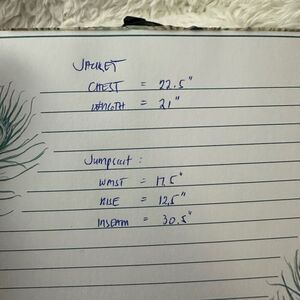 JACKET
CHEST = 22.5"
LENGTH = 21"
Jumpsuit :
WAIST = 17.5"
RISE = 12.5"
INSEAM = 30.5"